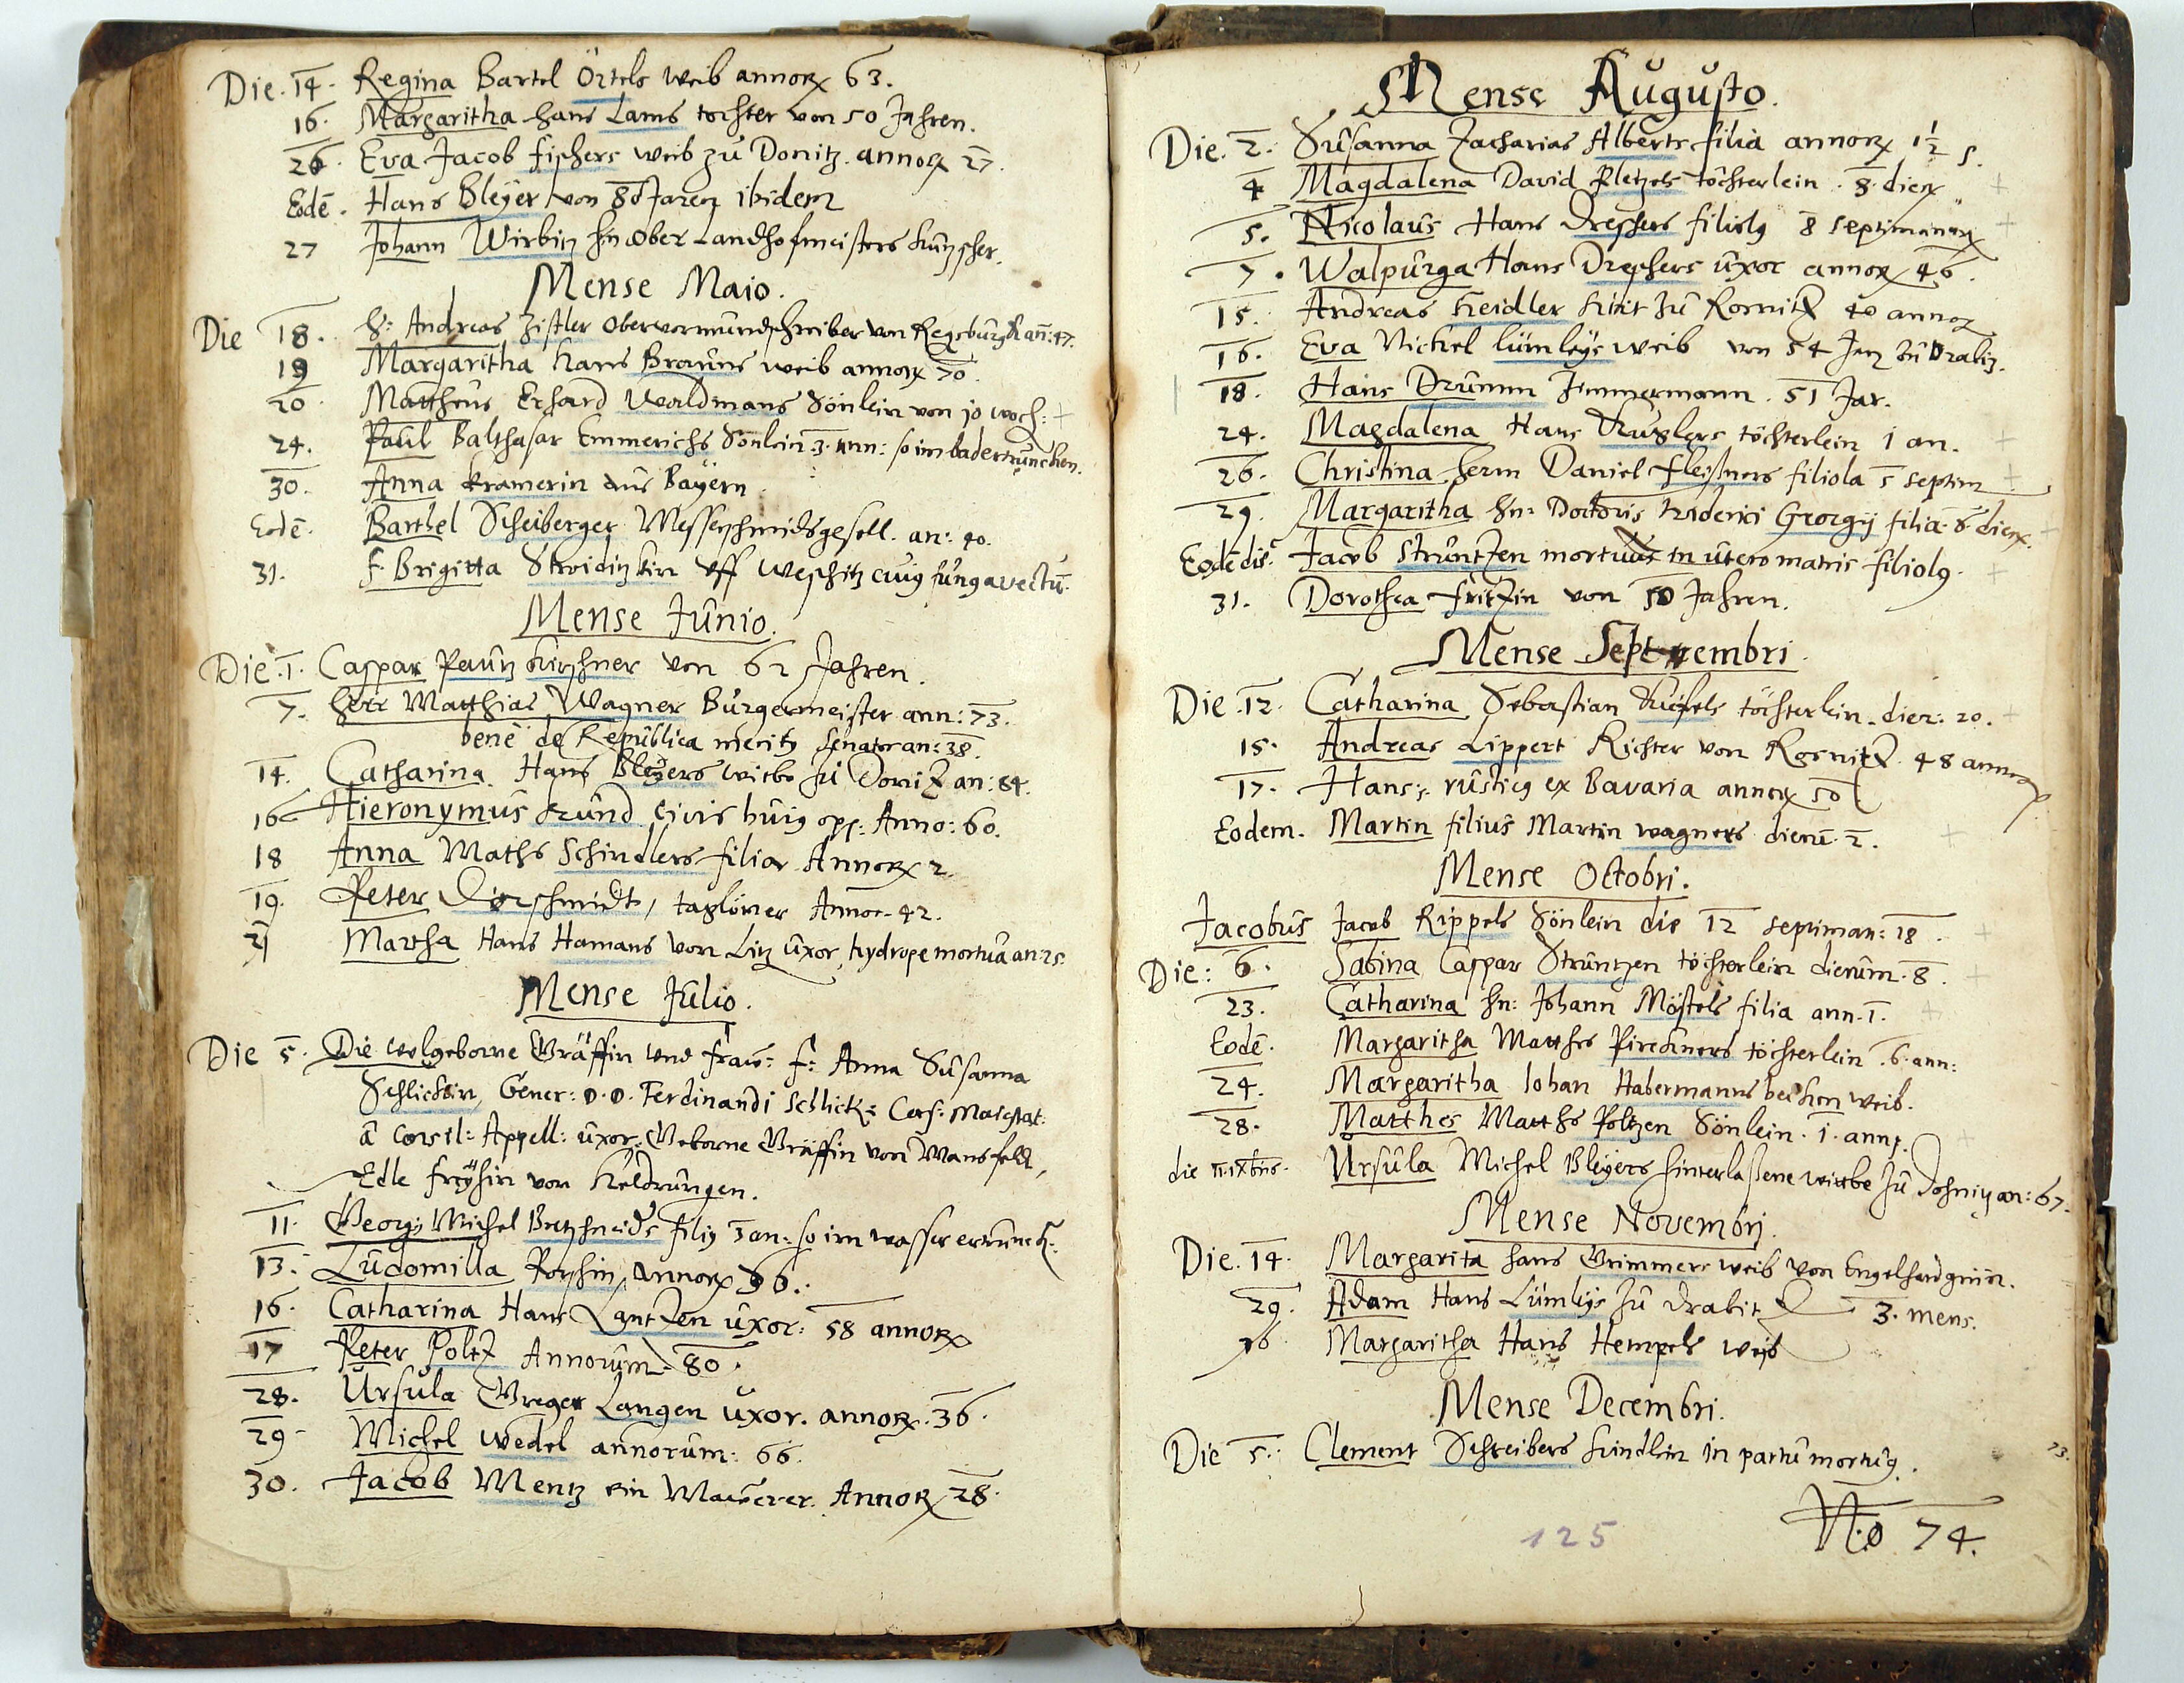 Die. 14. Regina Bartel Örtels weib annorꝝ 63.
16. Margaritha Hans Lams tochter von 50 Jahren.
26. Eva Jacob Fischers weib zu Donitz. annorꝝ 27.
Eodē. Hans Bleÿer von 80 Jaren ibidem
27 Johann Wirbitz hn ober Landhofmeisters
Mense Maio.
Die 18. H: Andreas Zistler Obervormundschreiber von Regsburgk añ: 47.
19 Margaritha Hans Brauns weib annorꝝ 70.
20 Mattheus Erhard Waldmans Sönlein von 10 woch:
24. Paul Balthasar Emmerichs Sönlein. 3. ann: so im bad ertruncken.
30. Anna kramerin aus Baÿern
Eodē. Barthel Scheiberger Messerschmidsgesell. an: 40.
31. F. Brigitta uff
Mense Junio.
Die. 1. Caspar Pautz Kirschner von 62 Jahren.
7. Herr Matthias Wagner Burgermeister ann: 73.
bene de Republica merit9 Senator an: 38.
14. Catharina Hans Bleÿers witbe zu Donitz an: 84.
16 Hieronymus Kund civis hui9 opp: Anno: 60.
18 Anna Maths Schindlers filia Annorꝝ 2.
19. Peter Dirschmidt, taglöner Annor. 42.
21 Martha Hans Hamans von Litz uxor, hydrope mortua an 25.
Mense Julio.
Die 5. Die wolgeborne Gräffin und Fraw: F: Anna Susanna
Schlickin, Gener: D. D. Ferdinandi Schlick: Caes: Maiestat:
â Consil: Appell: uxor. Geborne Gräffin von Mansfeld,
Edle freÿhin von Heldrungen.
11. Georg9 Michel fili9 3 an: so im wasser ertrunck:
13. Ludomilla annorꝝ 56.
16. Catharina Hans Lantzen uxor: 58 annorꝝ
17 Peter Poltz Annorum 80.
28. Ursula Greger Langen uxor. annorꝝ. 36.
29. Michel wedel annorum: 66.
30. Jacob Mentz ein Maurer. Annorꝝ 28.
Mense Augusto.
Die. 2. Susanna Zacharias Alberts filia annorꝝ 1½
4 Magdalena David Pletzels töchterlein. 8. dierꝝ
5. Nicolaus Hans Dreschers filiol9 8 septimanarꝝ
7. Walpurga Hans Dreschers uxor annorꝝ 46.
15. Andreas Heidler hirt zu Rosnitz 40 annorꝝ
16. Eva Nickel Lümleÿs weib von 54 Jarꝝ zu Dralitz.
18. Hans Drumm Zimmermann. 51 Jar.
24. Magdalena Hans töchterlein 1 an.
26. Christina herrn Daniel Fleisners filiola 5 septim
29. Margaritha Hn: Doctoris Friderici Georgij filia. 8. dierꝝ.
Eodē die. Jacob Struntzen mortuus in utero matris filiol9.
31. Dorothea Fritzin von 50 Jahren.
Mense Septembri.
Die. 12. Catharina Sebastian töchterlein. dier: 20.
15. Andreas Lippert Richter von Rosnitz. 48 annorꝝ
17. Hans: rustic9 ex Bavaria annorꝝ 50
Eodem. Martin filius Martin wagners dierū. 2.
Mense Octobri.
Jacobus Jacob Rippels Sönlein die 12 septiman: 18.
Die: 6. Sabina Caspar Struntzen töchterlein dierum. 8.
23. Catharina hn: Johann Möstels filia ann. 1.
Eodē. Margaritha Matthes Pirckners töchterlein. 6. ann:
24. Margaritha Iohan Habermanns becken weib.
28. Matthes Matths Poltzen Sönlein. 1. ann.
die Ursula Michel Bleÿers hinterlaßene wittbe zu an: 67.
Mense Novembri.
Die. 14. Margarita Hans Grimmers weib von Engelhardgrün.
29. Adam Hans Lümleÿs zu Dralitz 3. mens.
Margaritha Hans Hempels weib
Mense Decembri.
Die 5. Clement Schreibers kindlein in partu mortu9.
73.
No 74.
125